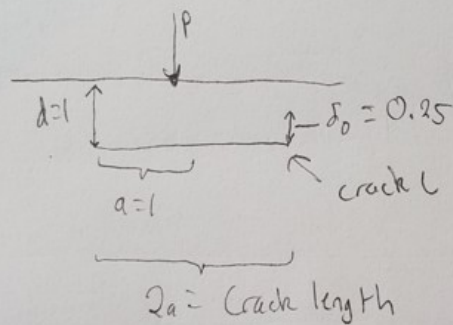 P
d=1
δ₀ = 0.25
a=1
crack L
2a = Crack length